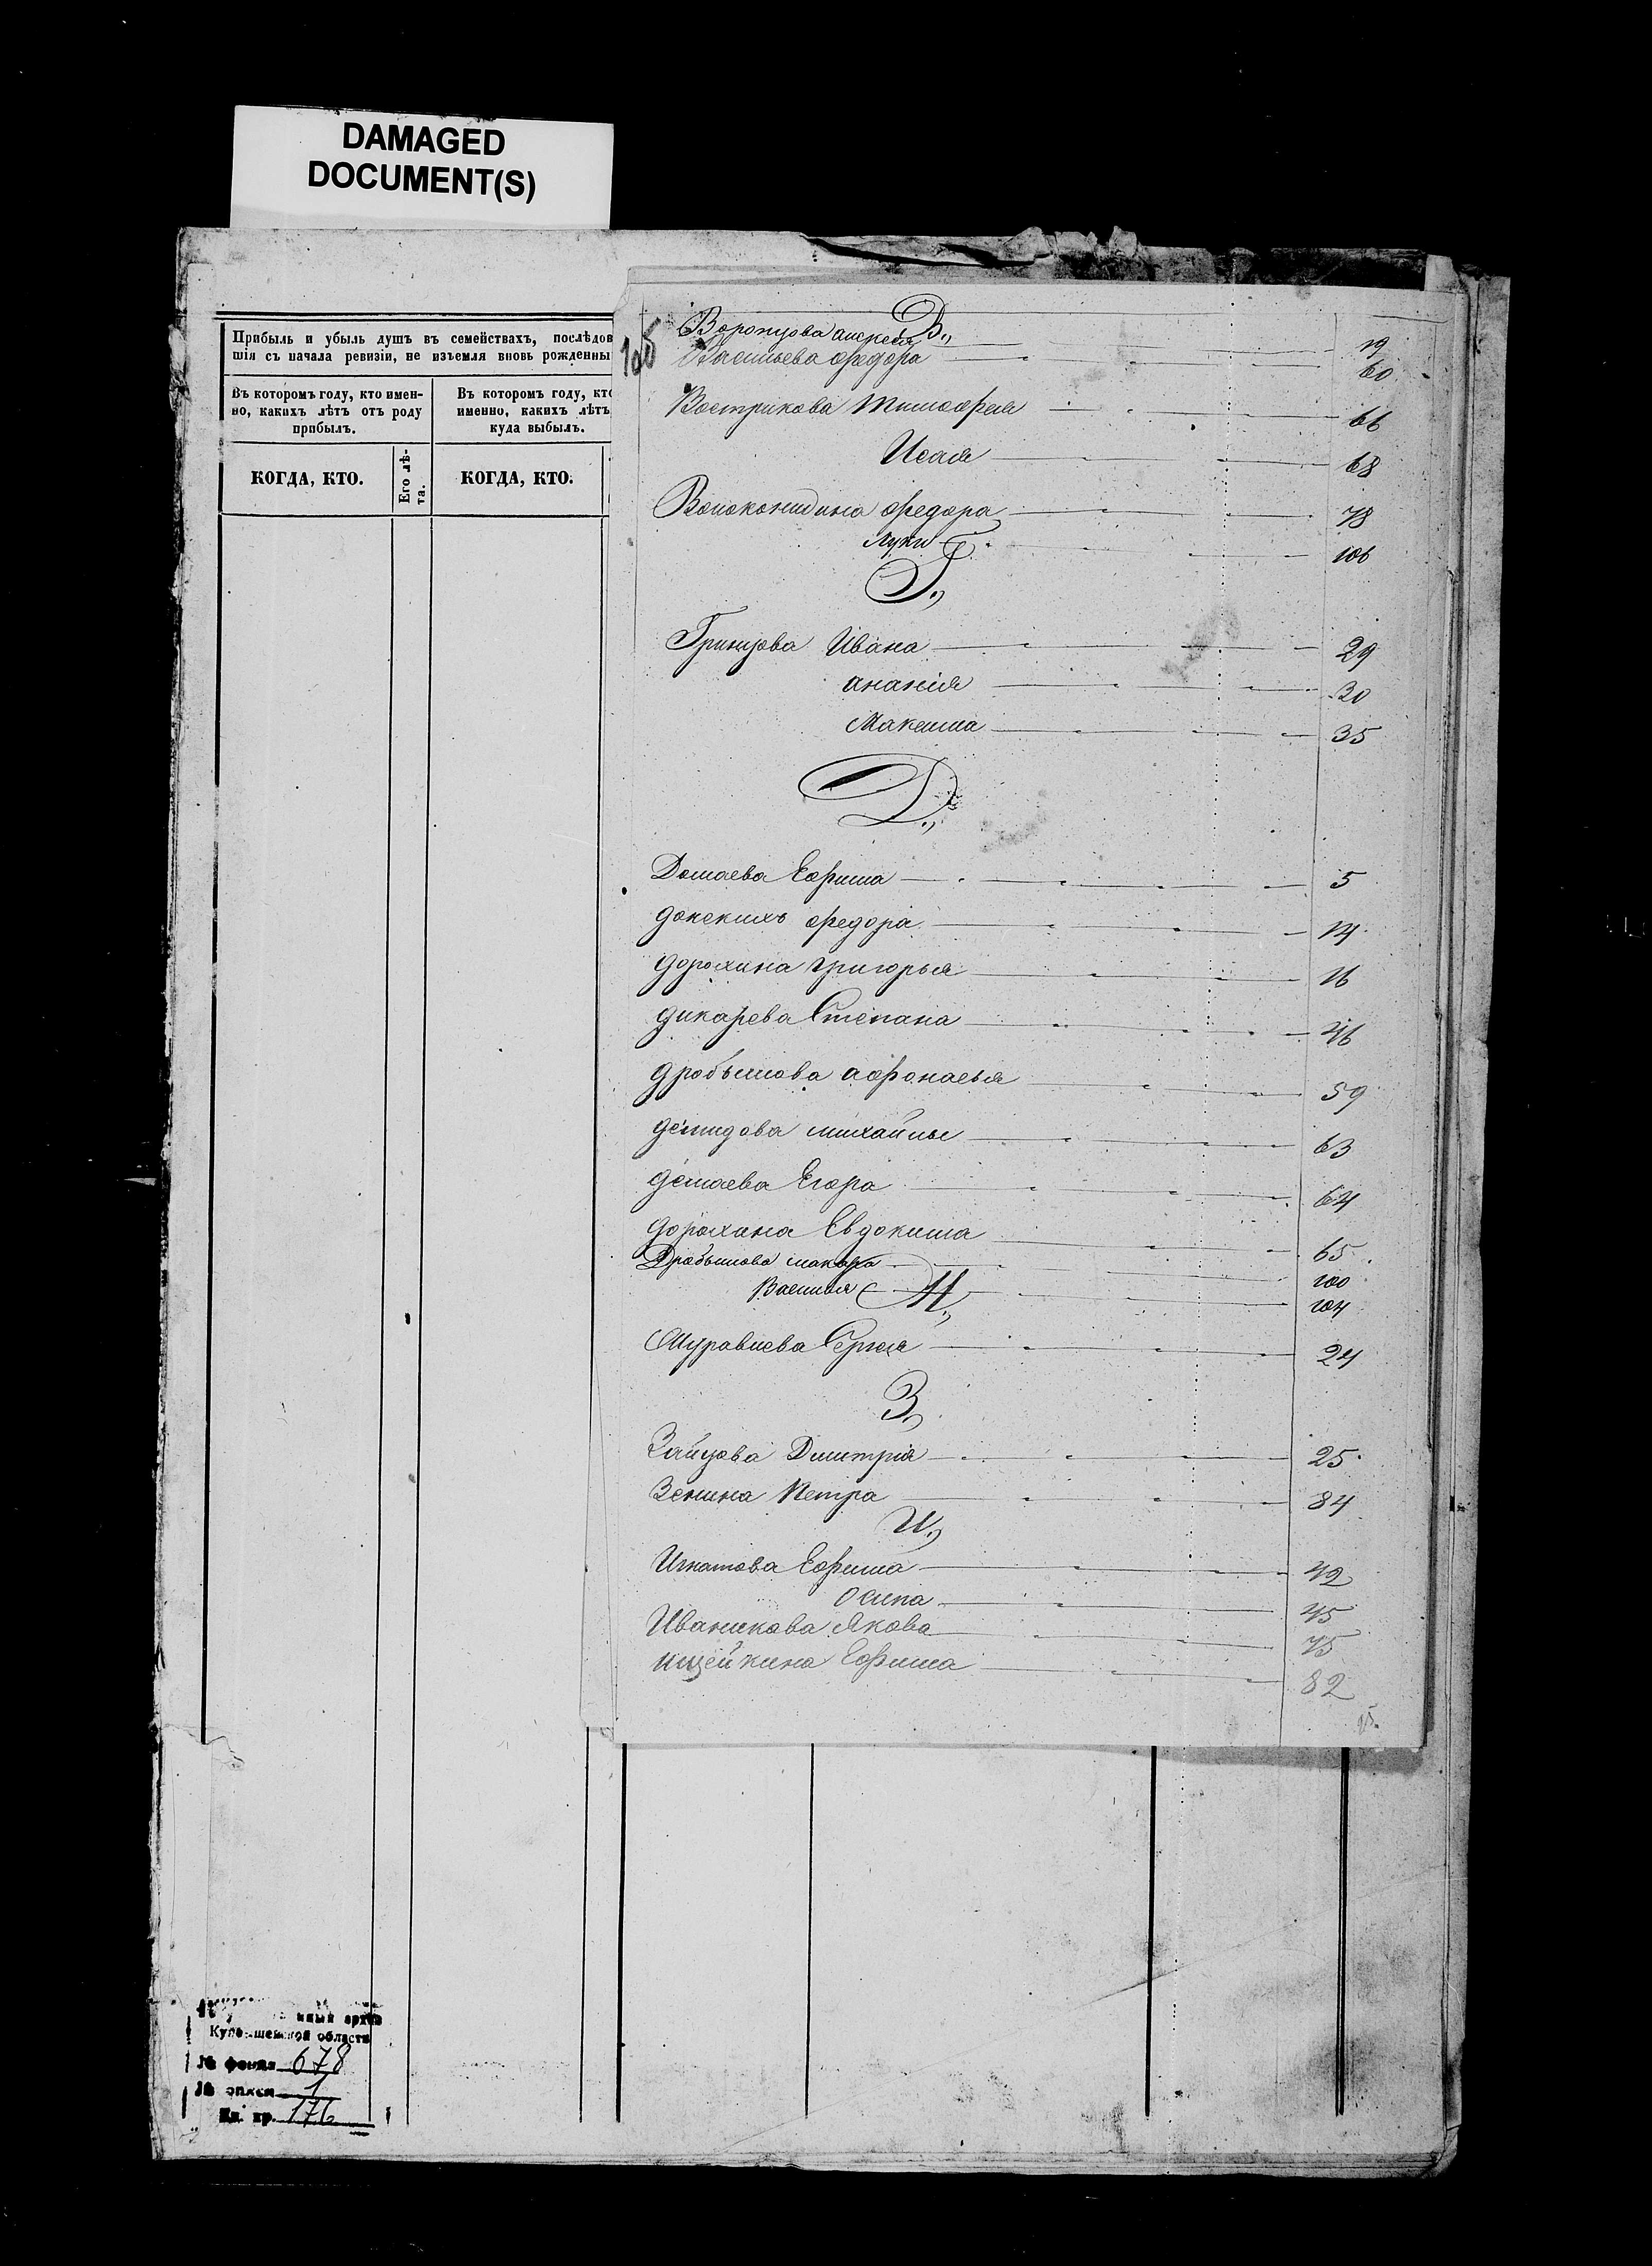 DAMAGED
DOCUMENT(S)
Прибыль и убыль душъ въ семействахъ, послѣдов
шія съ начала ревизіи, не изъемля вновь рожденны
Въ которомъ году, кто имен-
но, какихъ лѣтъ отъ роду
прибылъ.
Въ которомъ году, кто
именно, какихъ лѣтъ
куда выбылъ.
КОГДА, КТО.
Его лѣ-
та.
КОГДА, КТО.
В.,
Воронцова андрея 19
Васильева федора 60
Вострикова Тимофея 66
Исая 68
Волоконидина федора 78
Луки 106
Г.,
Гринцова Ивана 29
анания 30
Максима 35
Д.,
Домаева Ефима 5
донскихъ федора 14
дорохина григорья 16
дикарева Степана 46
дробышова афонасья 59
демидова михайлы 63
демаева Егора 64
дорохина Евдокима 65
Дробышова макара 100
Василья 104
Журавлева Сергея 24
З.,
Зайцова Дмитрія 25
Зенина Петра 84
И.,
Игнатова Ефима 42
Осипа 45
Иваникова Якова 75
ищейкина Ефима 82
нный архив
Куйбышевской области
№ фонда 678
№ описи 1
Ед. хр. 176